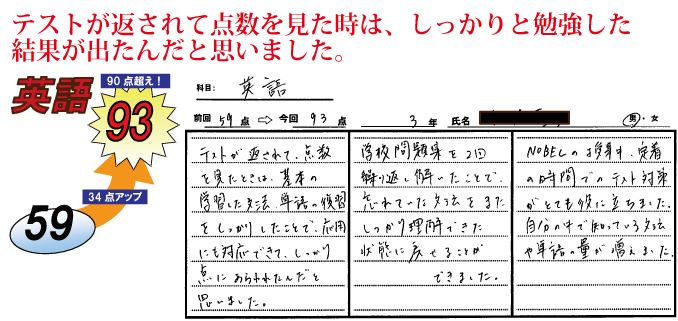 テストが返されて点数を見た時は、しっかりと勉強した
結果が出たんだと思いました。
英語
90点超え！
93
34点アップ
59
科目: 英語
前回 59 点 ⇨ 今回 93 点 3 年 氏名 男・女
テストが返されて、点数
を見たときは、基本の
学習した文法、単語の復習
をしっかりしたことで、応用
にも対応できて、しっかり
点にあらわれたんだと
思いました。
学校問題集を2回
繰り返し解いたことで、
忘れていた文法をまた
しっかり理解できた
状態に戻せることが
できました。
NOBELの授業や、定着
の時間でのテスト対策
がとても役に立ちました。
自分の中で知っている文法
や単語の量が増えました。